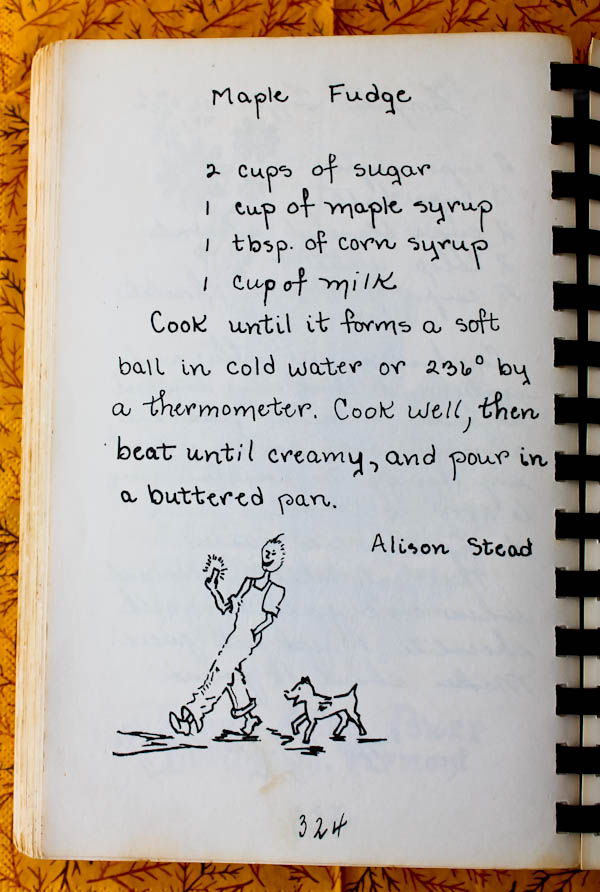 Maple Fudge
2 cups of sugar
1 cup of maple syrup
1 tbsp. of corn syrup
1 cup of milk
Cook until it forms a soft
ball in cold water or 236° by
a thermometer. Cook well, then
beat until creamy, and pour in
a buttered pan.
Alison Stead
324